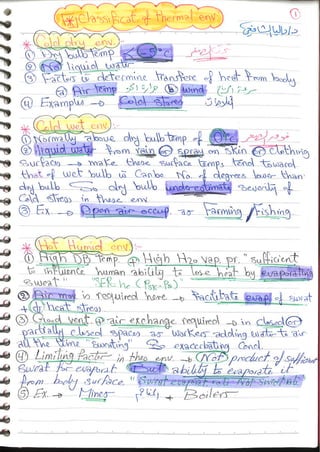 * Classificat. of thermal env.
1
* Cold dry env.
① Dry bulb temp < 5°C
② No liquid water
③ Factors determine transfere of heat from body
a) Air temp b) wind
④ Example → Cold stores
* Cold wet env:
① Normally above dry bulb temp of 0°C
② liquid water from rain or spray on skin or clothing
surfaces → make these surface temps tend toward
that of wet bulb is Can be No. of degrees lower than
dry bulb So dry bulb under-estimate severity of
Cold stress in these env
③ Ex → Open air occup as Farming / Fishing
* Hot Humid env:
① High DB temp @ High H2O vap. pr. "sufficient
to influence human ability to lose heat by evaporating
sweat"
② Air mov is required here → Facilitate evap of sweat
+ (↓) heat stress
③ Good vent @ air exchange required → in closed or
partially closed spaces as workers adding water to air
all the time "Sweating" So exacerbating Cond.
④ Limiting Factor in theo env → (Not) product of sufficient
sweat for evaporat But ability to evaporate it
from body surface "Sweat evaporat rate
⑤ Ex. → Mines + Boilers